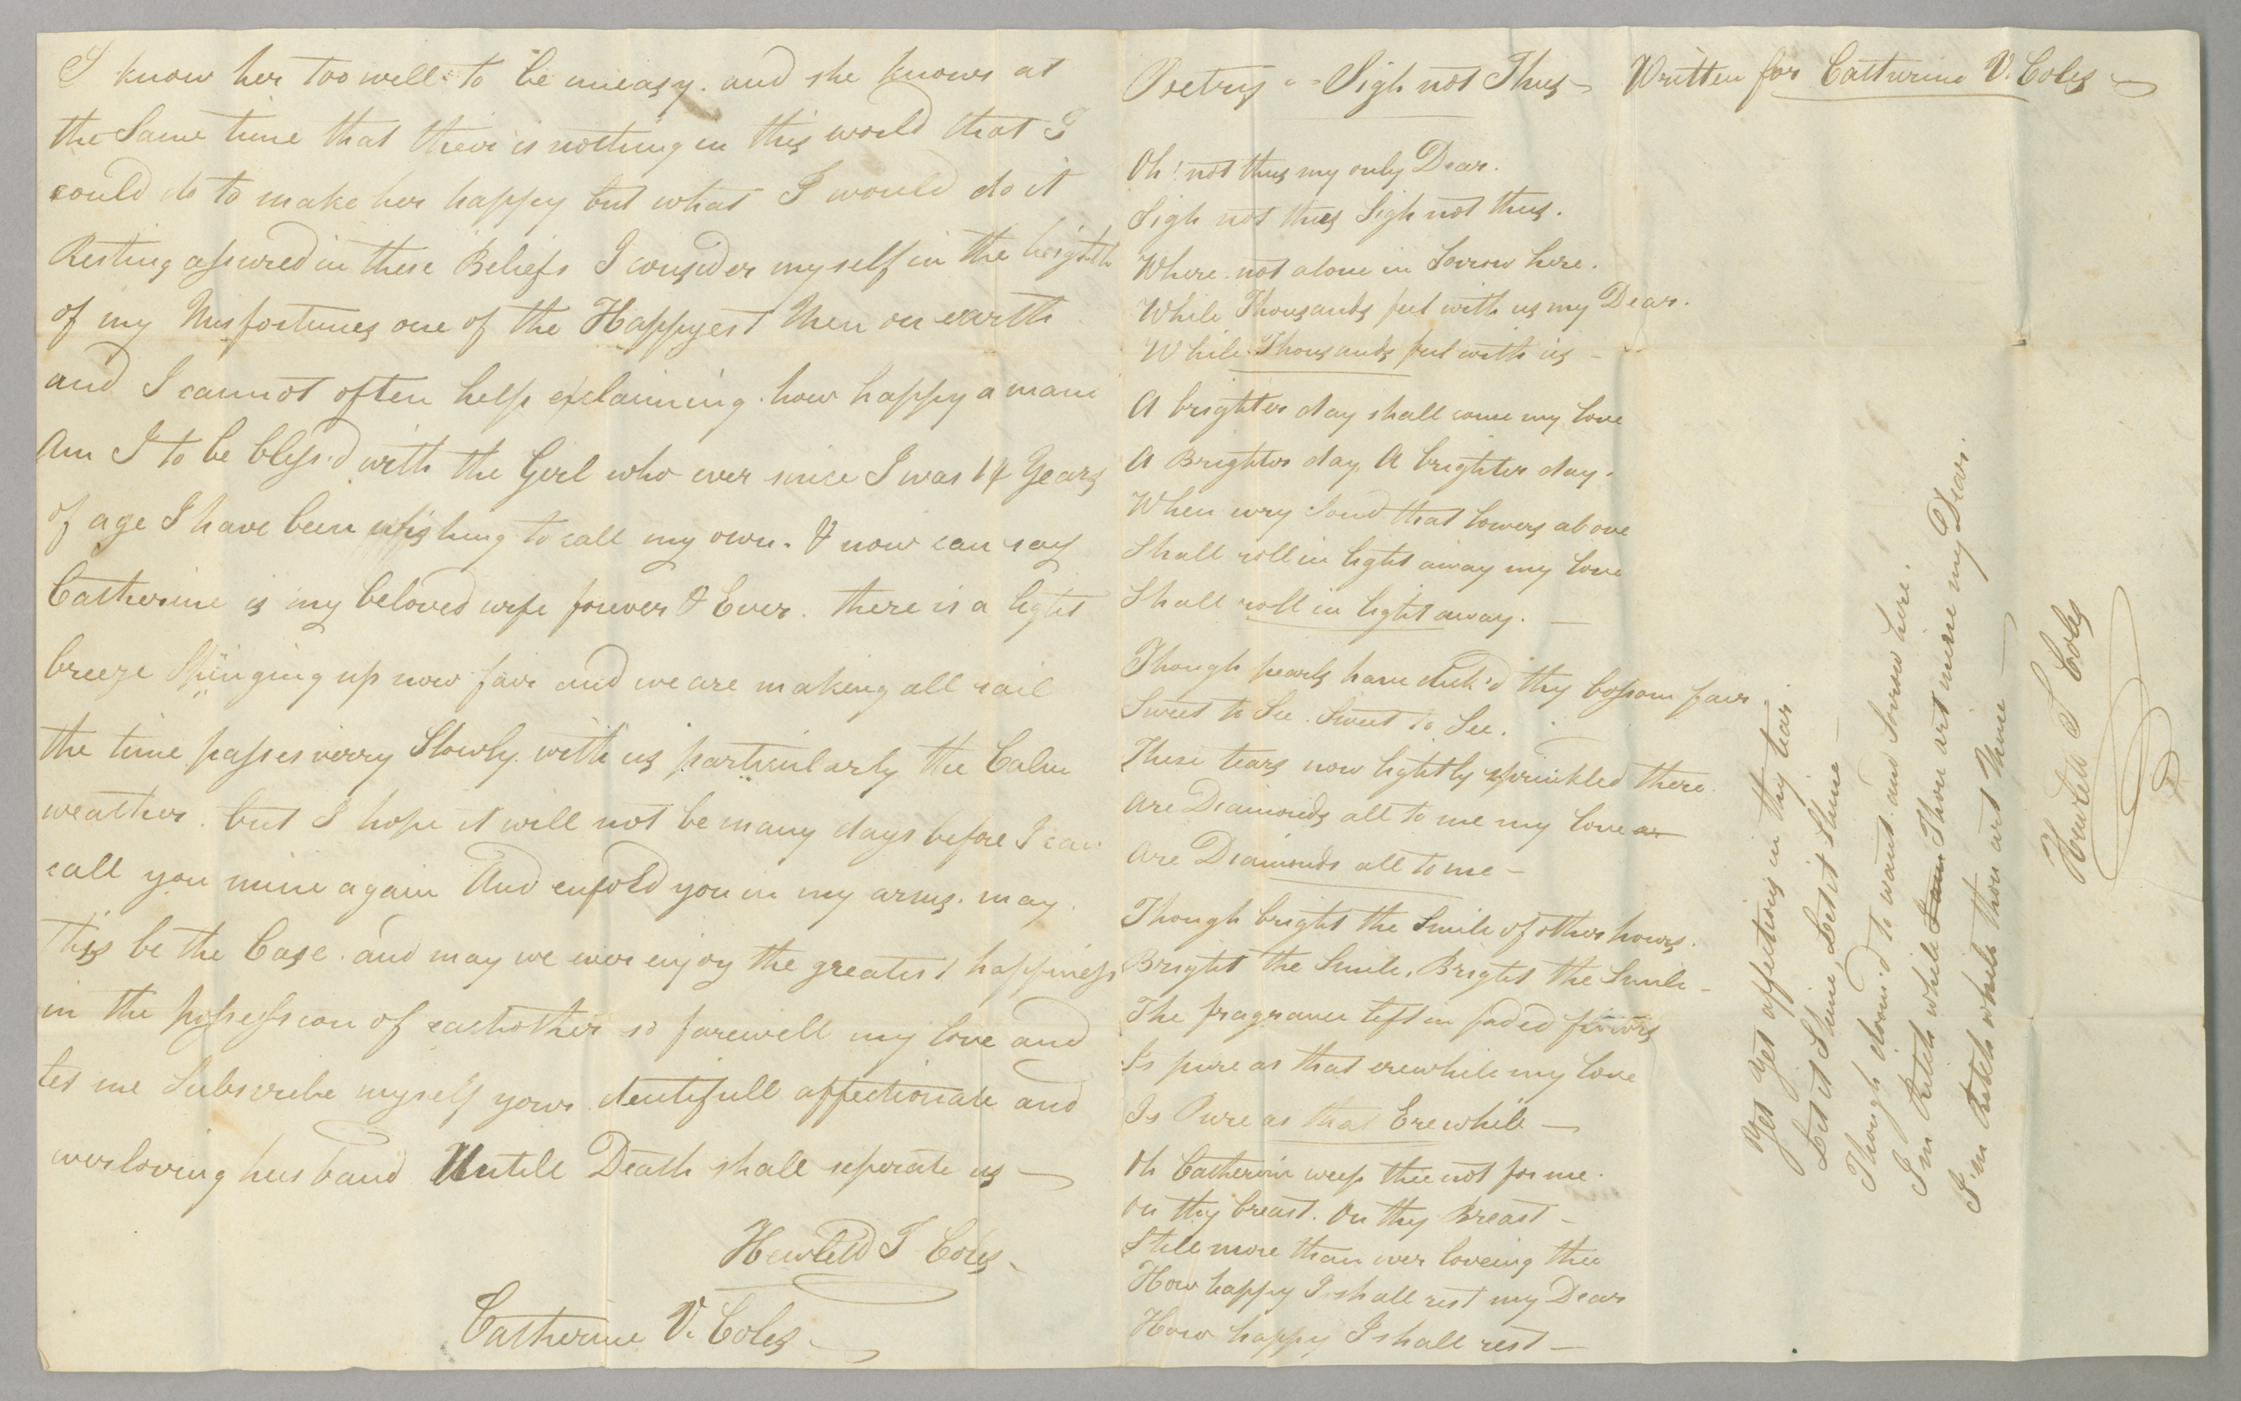 I know her too well to be uneasy. and she knows at
the Same time that their is nothing in this world that I
could do to make her happy but what I would do it
Resting assured in these Beliefs I consider myself in the heighth
of my Misfortunes one of the Happyest Men on earth
and I cannot often help exclaiming. how happy a man
Am I to be bless.d with the Girl who ever since I was 14 Years
of age I have been wishing to call my own. & now can say
Catherine is my beloved wife forever & Ever. there is a light
breeze Springing up now fair and we are making all sail
the time passes verry Slowly with us particularly the Calm
weather. but I hope it will not be many days before I can
call you mine again And enfold you in my arms. may
this be the Case. and may we ever enjoy the greatest happiness
in the possession of eachother so farewell my love and
let me Subscribe myself yours dutifull affectionate and
ever loving husband Untill Death shall seperate us —
Hewlett T Coles
Catherine V. Coles
Poetry - - Sigh not Thus - Written for Catherine V. Coles
Oh! not thus my only Dear.
Sigh not thus Sigh not thus.
Where not alone in Sorrow here.
While Thousands feel with us my Dear.
While Thousands feel with us -
A brighter day shall come my love
A Brighter day, A brighter day.
When evry loud that lowers above
Shall roll in light away my love
Shall roll in light away. —
Though pearls have deck'd thy bossom fair
Sweet to See. Sweet to See.
These tears now lightly sprinkled there.
Are Diamonds all to me my love ar
Are Diamonds all to me -
Though bright the Smile of other hours.
Bright the Smile. Bright the Smile -
The fragrance left in faded flowers
Is pure as that erewhile my love
Is Pure as that Erewhile —
Oh Catherine weep thee not for me.
On thy breast. On thy Breast -
Still more than ever loveing thee
How happy I shall rest my Dear
How happy I shall rest —
Yes Yes affections in thy tear.
Let it Shine, Let it Shine —
Though doom'd to want and Sorrow here.
I'm Ritch while Thou art mine my Dear.
I'm Ritch while thou art Mine —
Hewlett T Coles